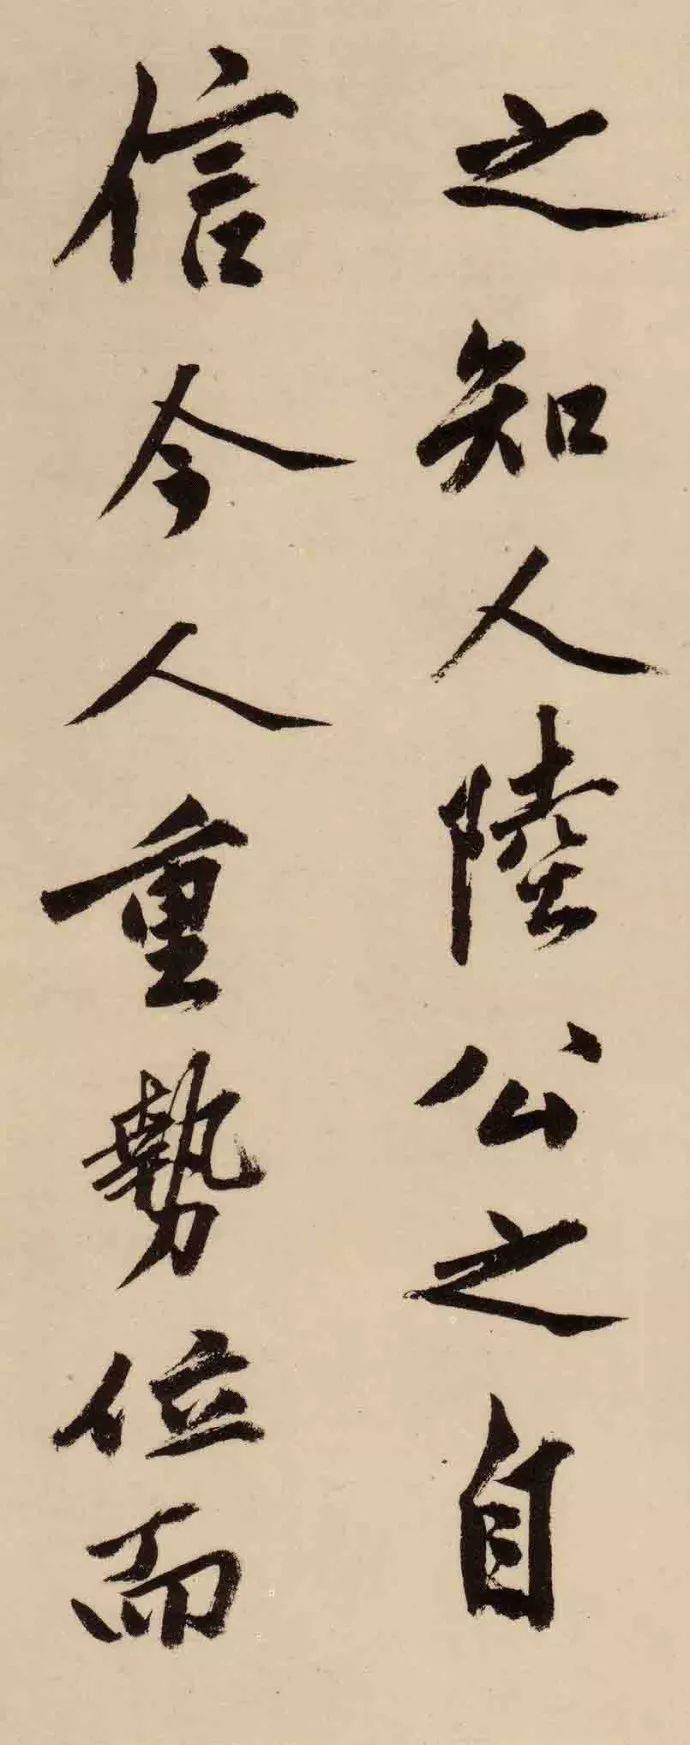 之知人陸公之自
信今人重勢位而